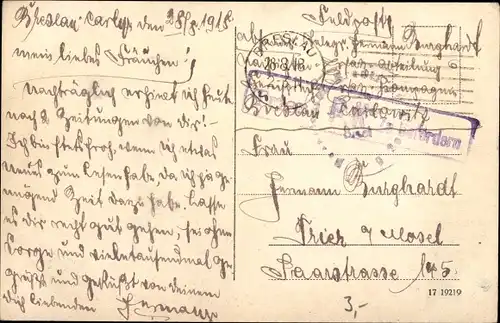 Breslau-Carlow. den 28/8. 1918.
mein liebes Frauchen!
Nachträglich erhielt ich heute
noch 2 Zeitungen von dir! –
Ich bin stets froh, wenn ich etwas
neues zum lesen habe, da ich ja ge-
nügend Zeit dazu habe. Lasse
es dir recht gut gehen, sei ohne
Sorge und vieltausendmal ge-
grüßt und geküßt von deinem
dich liebenden Hermann
Feldpost
Hermann Burghardt
Abteilung
Breslau Carlowitz
BRESLAU
28.8.18
Frau
Hermann Burghardt
Trier a/Mosel
Saarstrasse 145.
3,-
17 19219